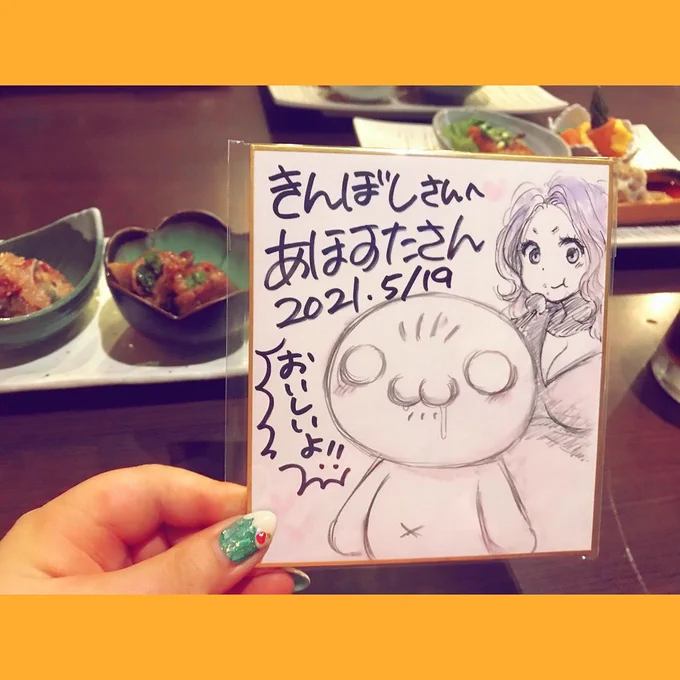 きんぼしさんへ
あほすたさん
2021.5/19
おいしいよ!!